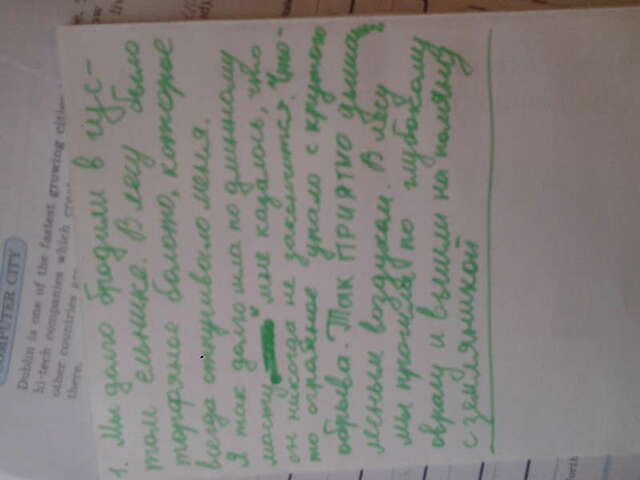 OMPUTER CITY
Dublin is one of the fastest growing cities
hi-tech companies which
other countries are
there.
1. Мы долго бродили в гус-
том ельнике. В лесу было
торфяное болото, которое
всегда отпугивало меня.
Я так долго шла по длинному
мосту мне казалось, что
он никогда не закончится. Что-
то огромное упало с крутого
обрыва. Так приятно дыша
лесным воздухом. В лесу
мы прошли по глубокому
оврагу и вышли на поляну
с земляникой